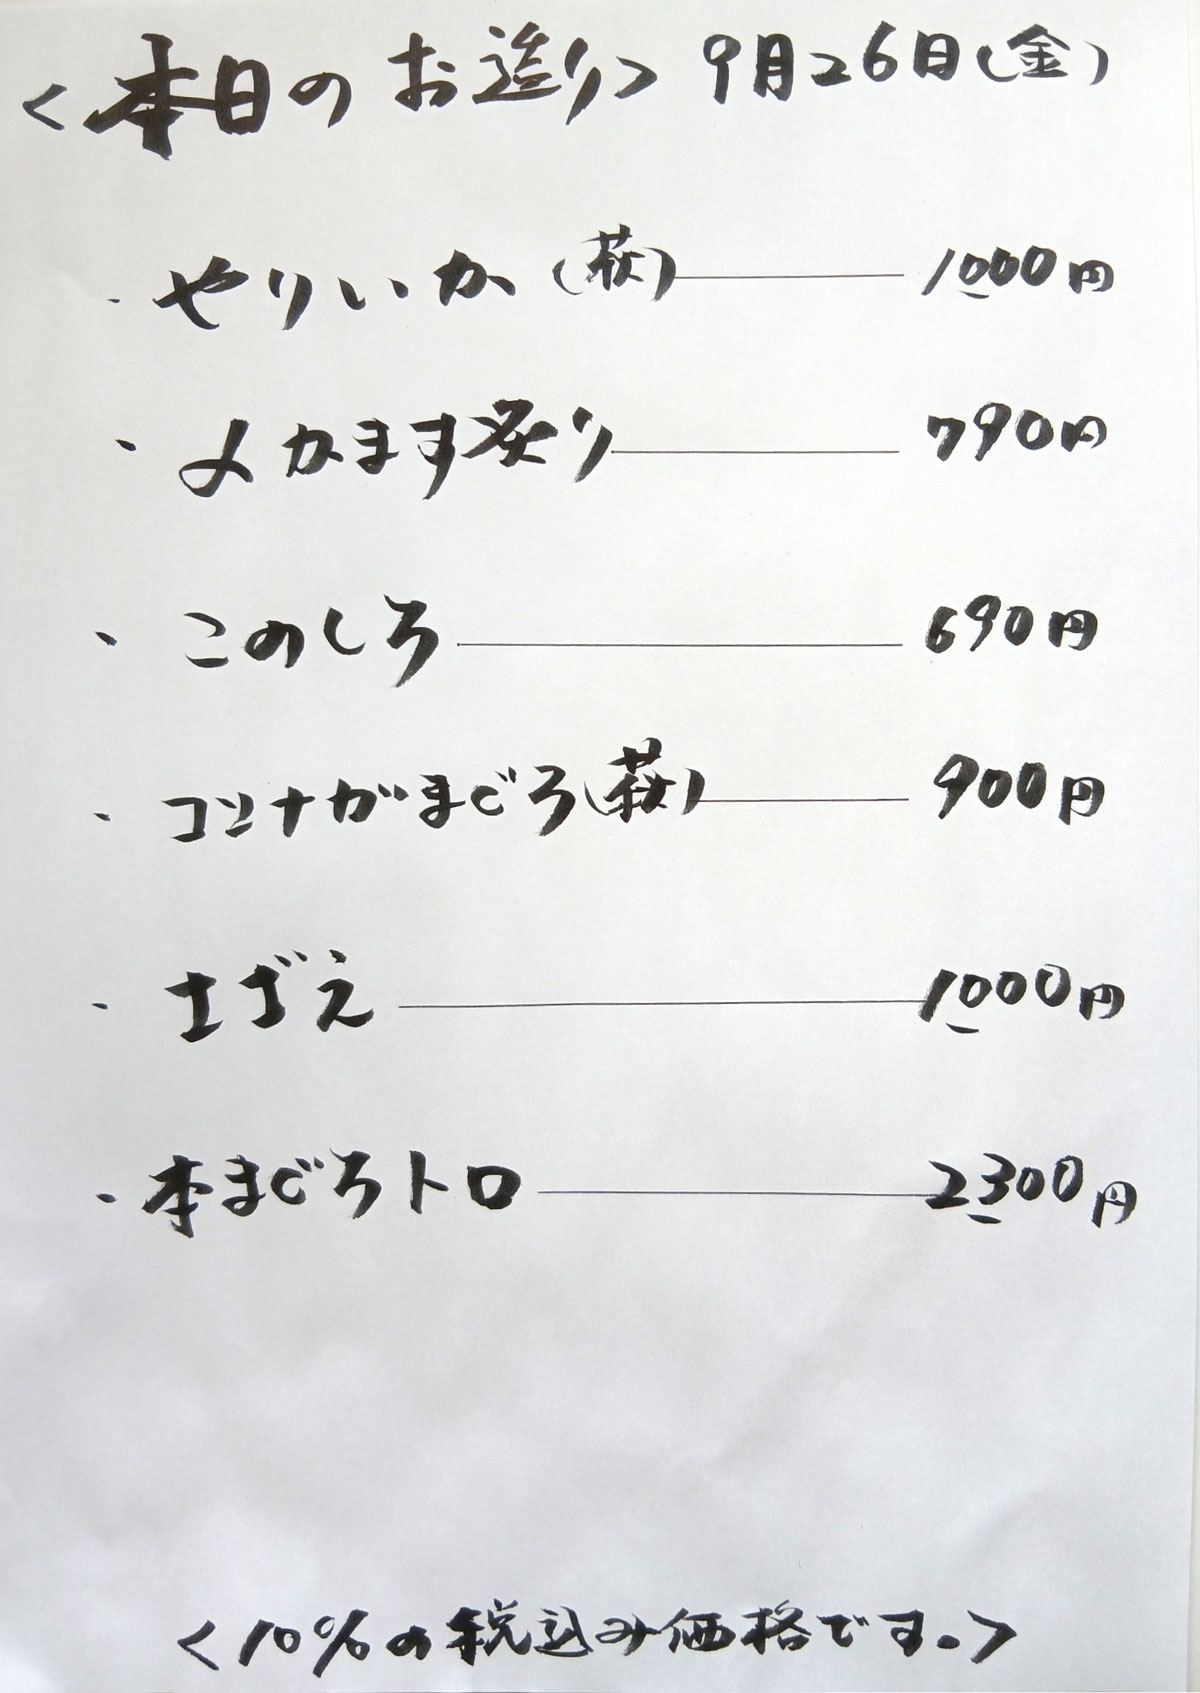 <本日のお造り> 9月26日(金)
・やりいか(萩) 1,000円
・〆かます炙り 790円
・このしろ 690円
・コシナガまぐろ(萩) 900円
・さざえ 1,000円
・本まぐろトロ 2,300円
<10%の税込み価格です。>